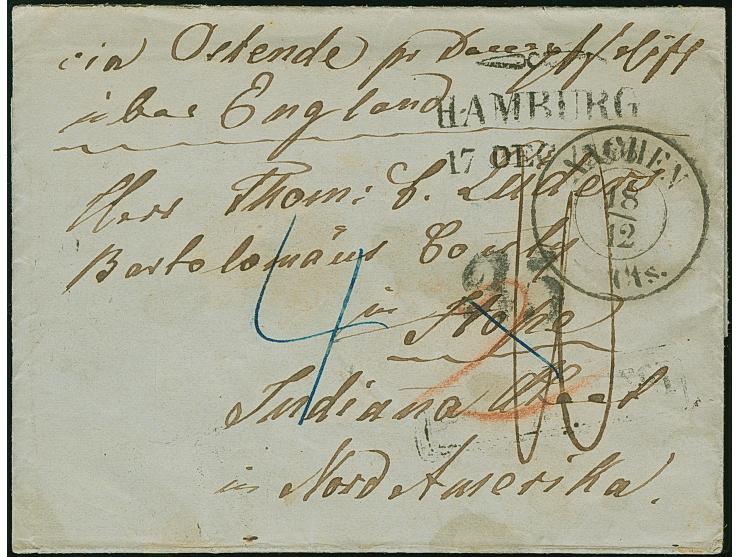 via Ostende pr Dampfschiff
über England.
HAMBURG
17 DEC
AACHEN
18
12
Cts.
Herr Thom: C. Luders
Bartolomäus County
23
4 2
in Hope
Indiana Staat
in Nord Amerika.